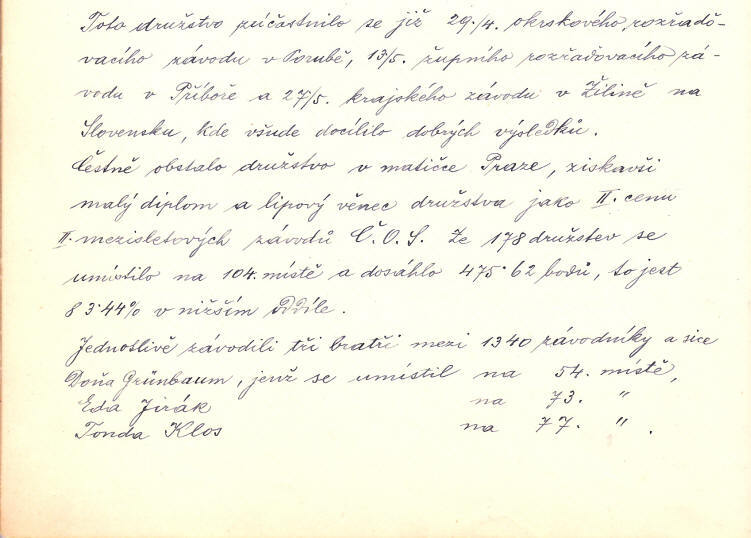 Toto družstvo zúčastnilo se již 29./4. okrskového rozřaďo-
vacího závodu v Porubě, 13/5. župního rozřaďovacího zá-
vodu v Příboře a 27/5. krajského závodu v Žilině na
Slovensku, kde všude docílilo dobrých výsledků.
Čestně obstálo družstvo v matičce Praze, získavši
malý diplom a lipový věnec družstva jako II. cenu
II. mezisletových závodů Č.O.S. Ze 178 družstev se
umístilo na 104. místě a dosáhlo 475·62 bodů, to jest
83·44% v nižším oddíle.
Jednotlivě závodili tři bratři mezi 1340 závodníky a sice
Doňa Grünbaum, jenž se umístil na 54. místě,
Eda Jirák na 73. "
Tonda Klos na 77. " .